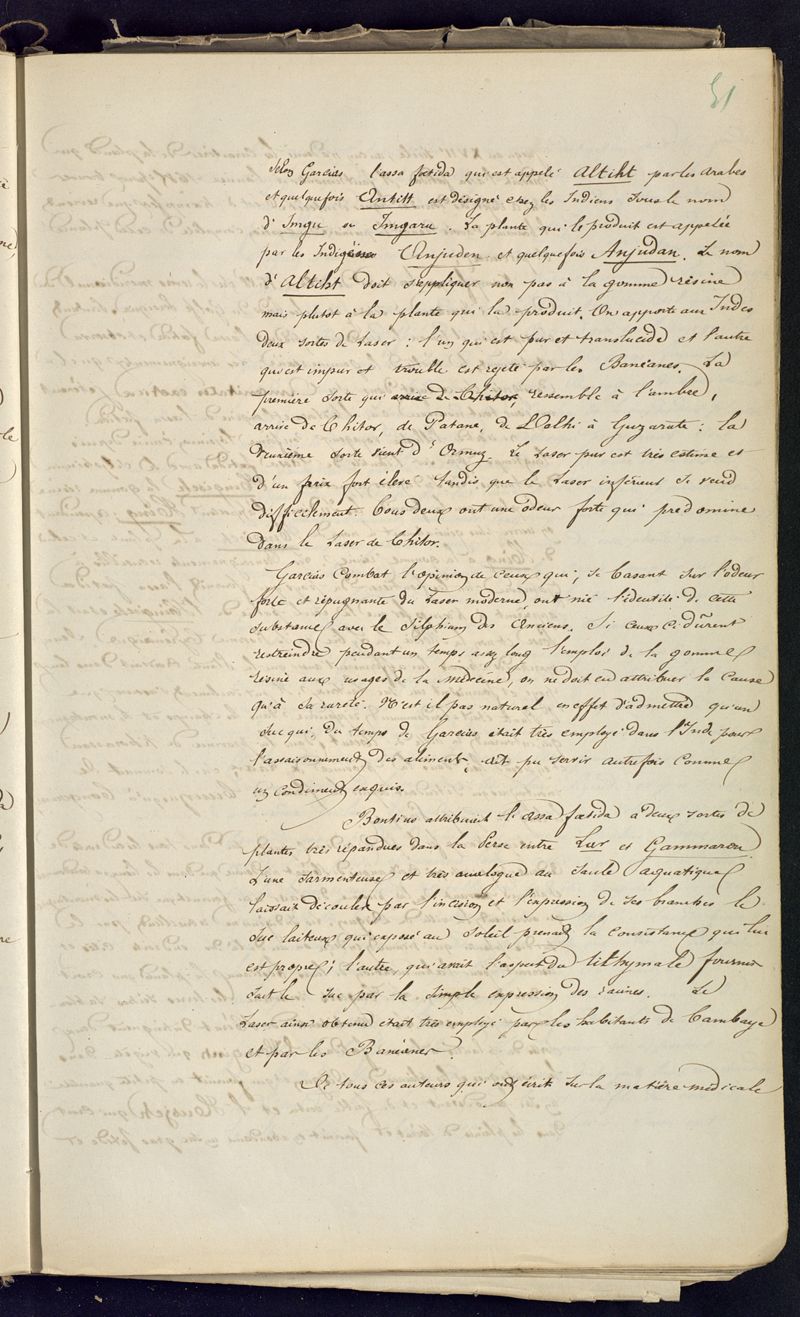 51
Selon Garcias l'assa foetida qui est appelé Altiht par les arabes
et quelquefois Antitt est désigné chez les Indiens sous le nom
d'Imgu ou Imgara. La plante qui le produit est appelée
par les Indigènes Anjuden et quelquefois Anjudan. Le nom
d'Altiht doit s'appliquer non pas à la gomme résine
mais plutot à la plante qui la produit. On apporte aux Indes
deux sortes de Laser : l'un qui est pur et translucide et l'autre
qui est impur et trouble est rejeté par les Banéanes. La
première sorte qui arrive de Chitor, ressemble à l'ambre,
arrive de Chitor, de Patane, de Dolhi à Guzarate : la
deuxième sorte vient d'Ormuz. Le Laser pur est très estimé et
d'un prix fort élevé tandis que le Laser inférieur se vend
difficilement. Tous deux ont une odeur forte qui prédomine
dans le Laser de Chitor.
Garcias combat l'opinion de ceux qui, se basant sur l'odeur
forte et répugnante du Laser moderne, ont nié l'identité de cette
substance avec le Silphium des Anciens. Si ceux ci dûrent
restreindre pendant un temps assez long l'emploi de la gomme
résine aux usages de la Médecine, on ne doit en attribuer la cause
qu'à sa rareté. N'est il pas naturel en effet d'admettre qu'un
suc qui, du temps de Garcias, était très employé dans l'Inde pour
l'assaisonnement des aliments, ait pu servir autrefois comme
un condiment exquis.
Bontius attribuait l'assa foetida à deux sortes de
plantes très répandues dans la Perse entre Lar et Gammaron
L'une sarmenteuse et très analogue au saule aquatique
laissait découler par l'incision et l'expression de ses branches le
suc laiteux qui exposé au soleil prenait la consistance qui lui
est propre ; l'autre, qui avait l'aspect du tithymale fournis
sait le suc par la simple expression des racines. Le
Laser ainsi obtenu était très employé par les habitants de Cambaye
et par les Banéanes.
De tous ces auteurs qui ont écrit sur la matière médicale